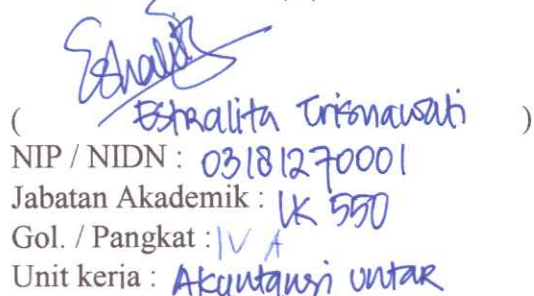 ( Estralita Trisnawati )
NIP / NIDN : 03181270001
Jabatan Akademik : LK 550
Gol. / Pangkat : IV A
Unit kerja : Akuntansi untar